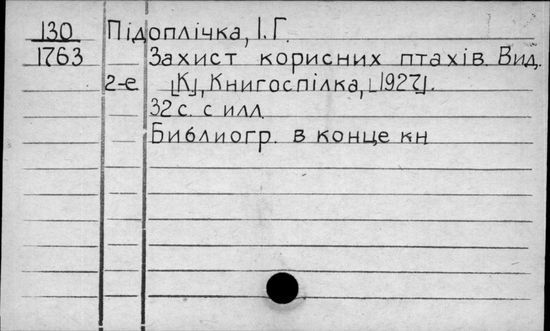 130 Підоплічка, І. Г.
1763 Захист корисних птахів. Вид.
2-е [К], Книгоспілка, [1927].
32 с. с илл.
Библиогр. в конце кн